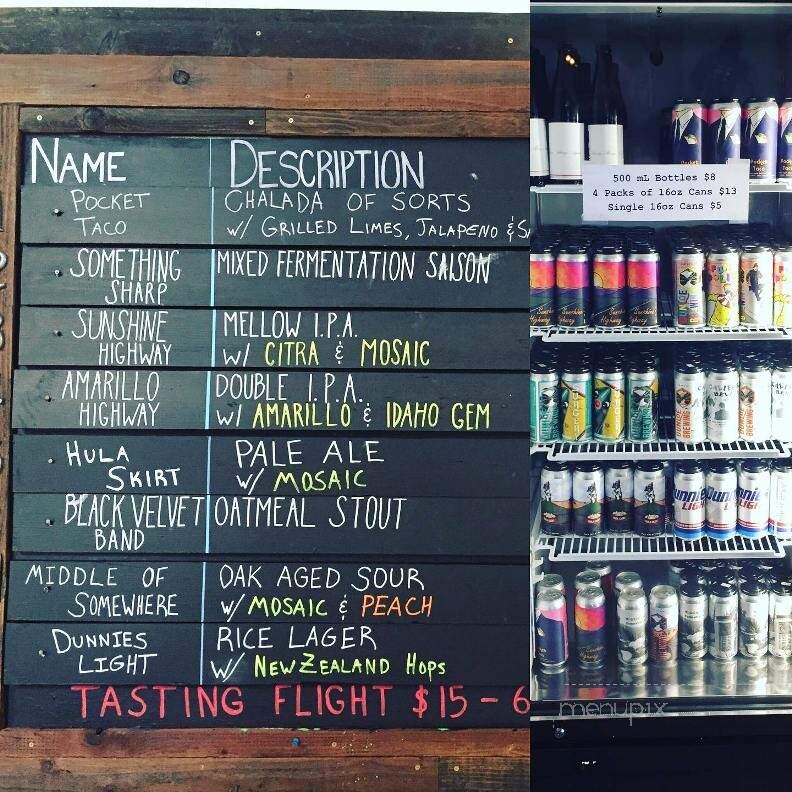 NAME DESCRIPTION
POCKET TACO
CHALADA OF SORTS
w/ GRILLED LIMES, JALAPENO & SA
SOMETHING SHARP
MIXED FERMENTATION SAISON
SUNSHINE HIGHWAY
MELLOW I.P.A.
w/ CITRA & MOSAIC
AMARILLO HIGHWAY
DOUBLE I.P.A.
w/ AMARILLO & IDAHO GEM
HULA SKIRT
PALE ALE
w/ MOSAIC
BLACK VELVET BAND
OATMEAL STOUT
MIDDLE OF SOMEWHERE
OAK AGED SOUR
w/ MOSAIC & PEACH
DUNNIES LIGHT
RICE LAGER
w/ NEW ZEALAND HOPS
TASTING FLIGHT $15 - 6
500 mL Bottles $8
4 Packs of 16oz Cans $13
Single 16oz Cans $5
menupix